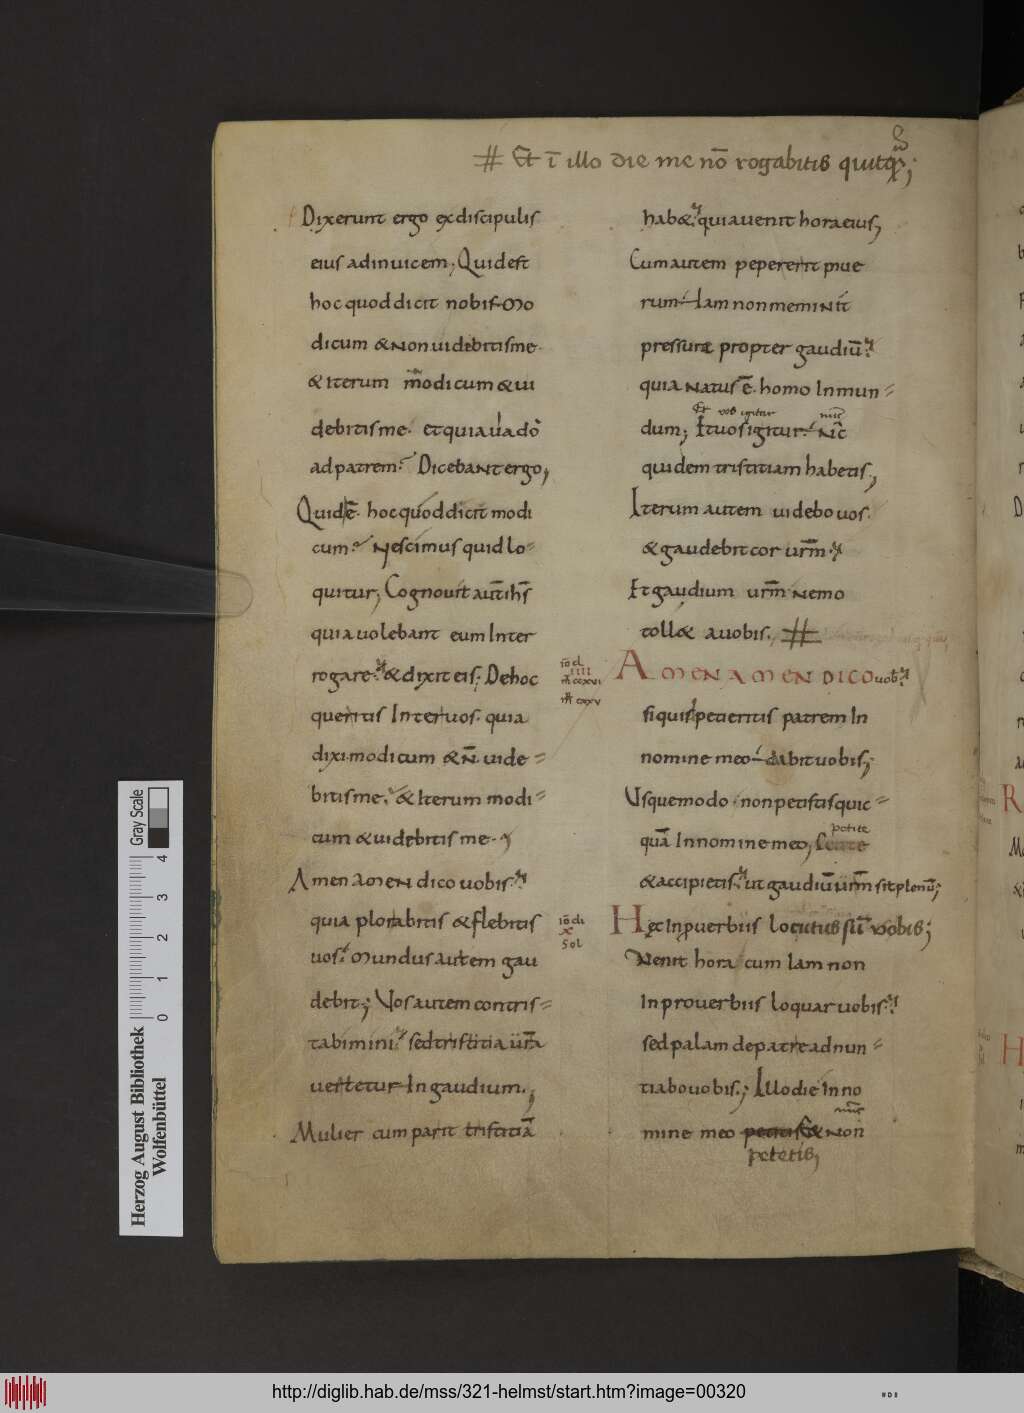 # Et ī illo die me nō rogabitis quicq̄;
Dixerunt ergo exdiscipulis
eius adinuicem; Quidest
hoc quoddicit nobis. Mo
dicum &nonuidebitisme.
&iterum modicum &ui
debitisme. etquia uado
adpatrem? Dicebant ergo;
Quidē. hocquoddicit modi
cum? Nescimus quid lo=
quitur; Cognouit aut̄ ihs̄
quia uolebant eum Inter
rogare. &dixit eis; Dehoc
queritis Inter uos. quia
dixi. modicum &n̄ uide=
bitisme. &Iterum modi=
cum &uidebitis me.
Amen amen dico uobis.
quia plorabitis &flebitis
uos. Mundus autem gau
debit; Vos autem contris=
tabimini. sedtristitia ūra
uertetur In gaudium.;
Mulier cum parit tristitiā
hab&. quia uenit hora eius;
Cum autem pepererit pue
rum. Iam non meminit
pressurae propter gaudiū.
quia natus ē. homo In mun=
Et uos igitur nunc
dum; Et uos igitur. nc̄
quidem tristitiam habetis.;
Iterum autem uidebo uos.
&gaudebit cor ur̄m.
Et gaudium ur̄m nemo
toll& auobis. #
iō cl
IIII
m̄ ccxvi
mr̄ cxxv
AMEN AMEN DICO uob̄.
siquid petieritis patrem In
nomine meo. dabit uobis;
Vsquemodo. non petistis quic=
petite
quā In nomine meo;
&accipietis. ut gaudiū ūrm sit plenū;
iō cli
x
sol
Hęc In puerbiis locutus sū uobis;
Venit hora cum Iam non
In prouerbiis loquar uobis.
sed palam de patre adnun=
tiabo uobis.; Illo die in no
mine meo petitis & non
petetis;
Herzog August Bibliothek
Wolfenbüttel
0 1 2 3 4
Gray Scale
http://diglib.hab.de/mss/321-helmst/start.htm?image=00320